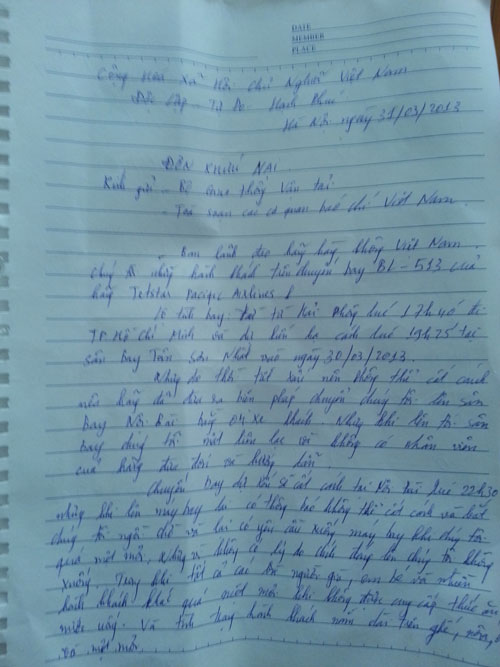 DATE
MEMBER
PLACE
Cộng Hòa Xã Hội Chủ Nghĩa Việt Nam
Độc Lập Tự Do Hạnh Phúc
Hà Nội ngày 31/03/2013
ĐƠN KHIẾU NẠI
Kính gửi - Bộ Giao thông Vận tải
- Toà soạn các cơ quan báo chí Việt Nam.
- Ban lãnh đạo hãng hàng không Việt Nam.
Chúng tôi những hành khách trên chuyến bay BL-513 của
hãng Jetstar Pacific Airlines
Lộ trình bay: Từ Hải Phòng lúc 17h40 đi
TP Hồ Chí Minh và dự kiến hạ cánh lúc 19h25 tại
sân bay Tân Sơn Nhất vào ngày 30/03/2013.
Nhưng do thời tiết xấu nên không thể cất cánh
nên hãng đã đưa ra biện pháp chuyển chúng tôi lên sân
bay Nội Bài bằng xe khách. Nhưng khi lên tới sân
bay chúng tôi mất liên lạc và không có nhân viên
của hãng đưa đón và hướng dẫn.
Chuyến bay dự kiến sẽ cất cánh tại Nội Bài lúc 22h30
nhưng khi lên máy bay lại có thông báo không thể cất cánh và bắt
chúng tôi ngồi chờ và lại có yêu cầu xuống máy bay khi chúng tôi
quá mệt mỏi, và không có lý do chính đáng lên chúng tôi không
xuống. Trong khi tất cả các người già, em bé và nhiều
hành khách khác quá mệt mỏi khi không được cung cấp thức ăn
nước uống. Và tình trạng hành khách nằm dài trên ghế,
và mệt mỏi.